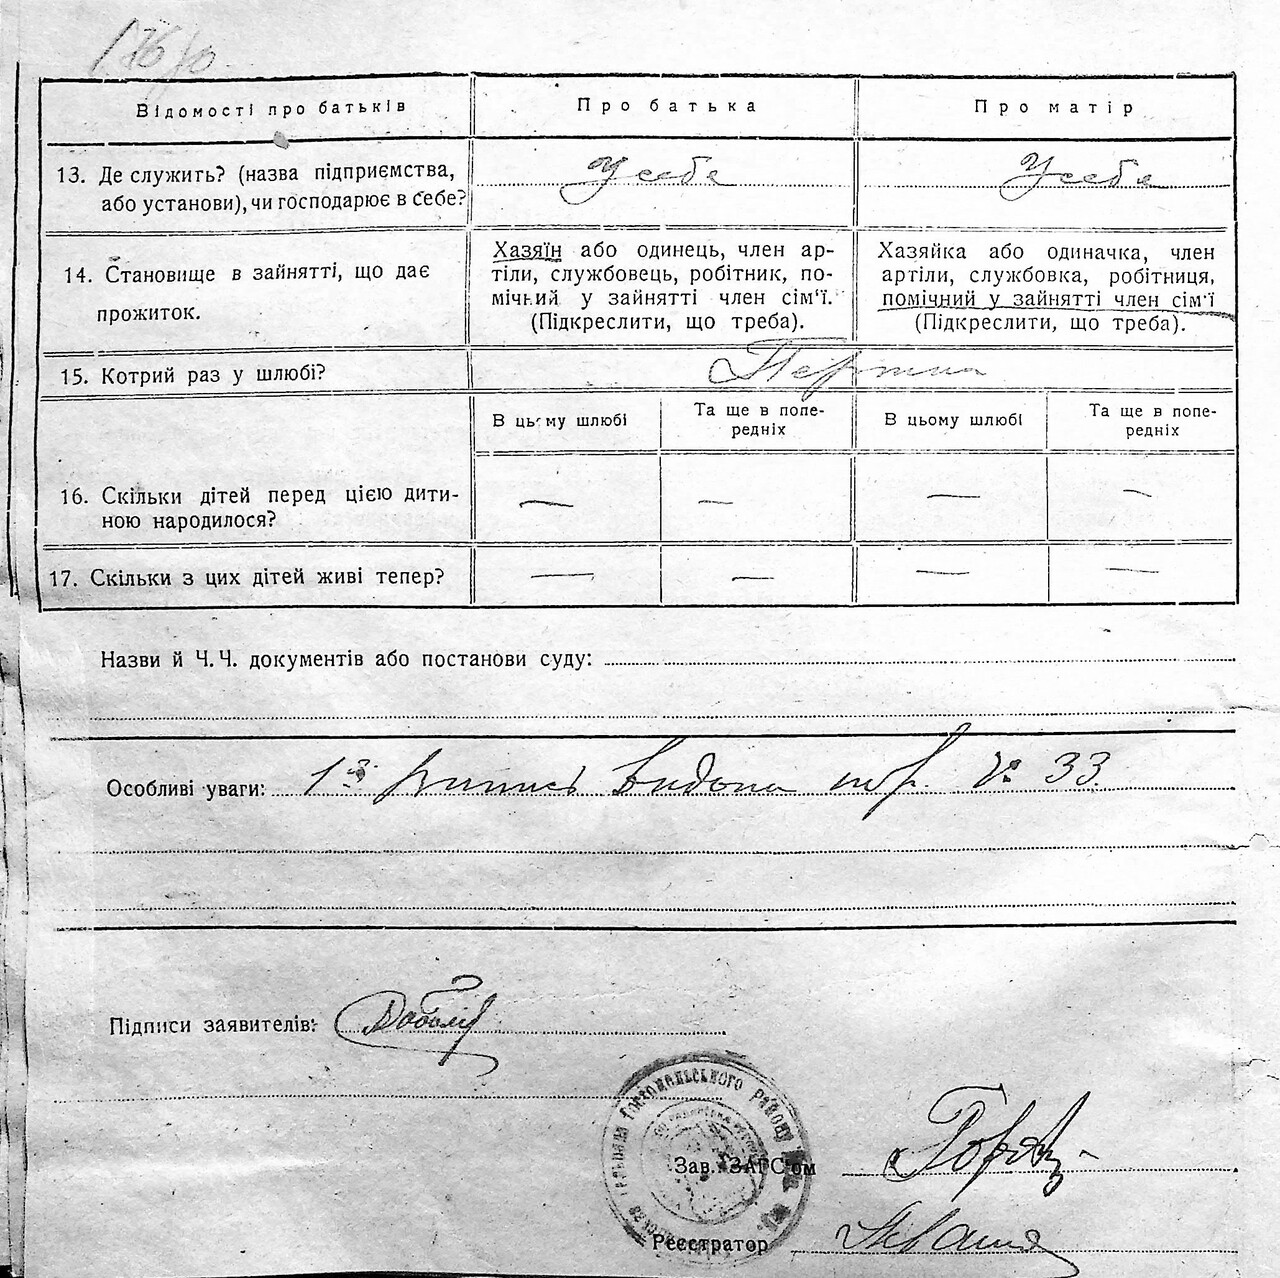 Відомості про батьків
Про батька
Про матір
13. Де служить? (назва підприємства,
або установи), чи господарює в себе?
У себе
У себе
14. Становище в зайнятті, що дає
прожиток.
Хазяїн або одинець, член ар-
тіли, службовець, робітник, по-
мічний у зайнятті член сім'ї.
(Підкреслити, що треба).
Хазяйка або одиначка, член
артіли, службовка, робітниця,
помічний у зайнятті член сім'ї
(Підкреслити, що треба).
15. Котрий раз у шлюбі?
В цьому шлюбі
Та ще в попе-
редніх
В цьому шлюбі
Та ще в попе-
редніх
16. Скільки дітей перед цією дити-
ною народилося?
—
—
—
—
17. Скільки з цих дітей живі тепер?
—
—
—
—
Назви й Ч.Ч. документів або постанови суду:
Особливі уваги: видана № 33
Підписи заявителів:
району
Зав. ЗАГС'ом
Реєстратор